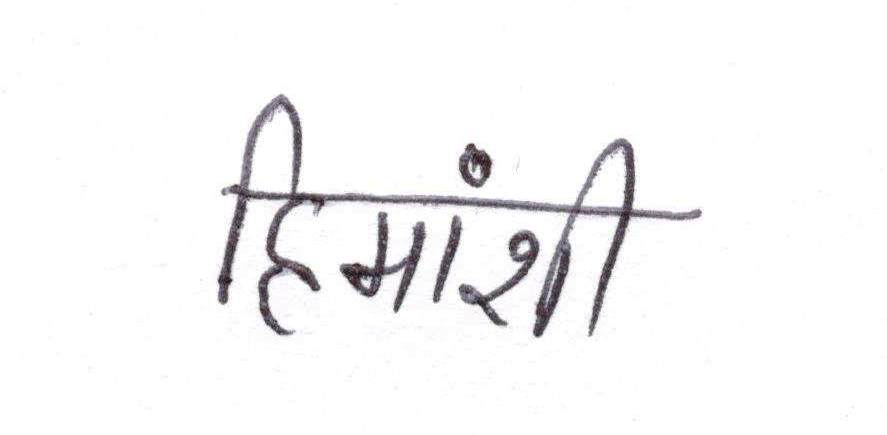 हिमांशी